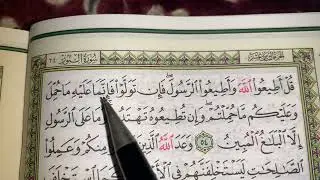 سُورَةُ النُّورِ ٢٤
قُلْ أَطِيعُوا اللَّهَ وَأَطِيعُوا الرَّسُولَ ۖ فَإِن تَوَلَّوْا فَإِنَّمَا عَلَيْهِ مَا حُمِّلَ
وَعَلَيْكُم مَّا حُمِّلْتُمْ ۖ وَإِن تُطِيعُوهُ تَهْتَدُوا ۚ وَمَا عَلَى الرَّسُولِ
إِلَّا الْبَلَاغُ الْمُبِينُ ٥٤ وَعَدَ اللَّهُ الَّذِينَ مِنكُمْ وَعَمِلُوا
الصَّالِحَاتِ لَيَسْتَخْلِفَنَّهُمْ فِي